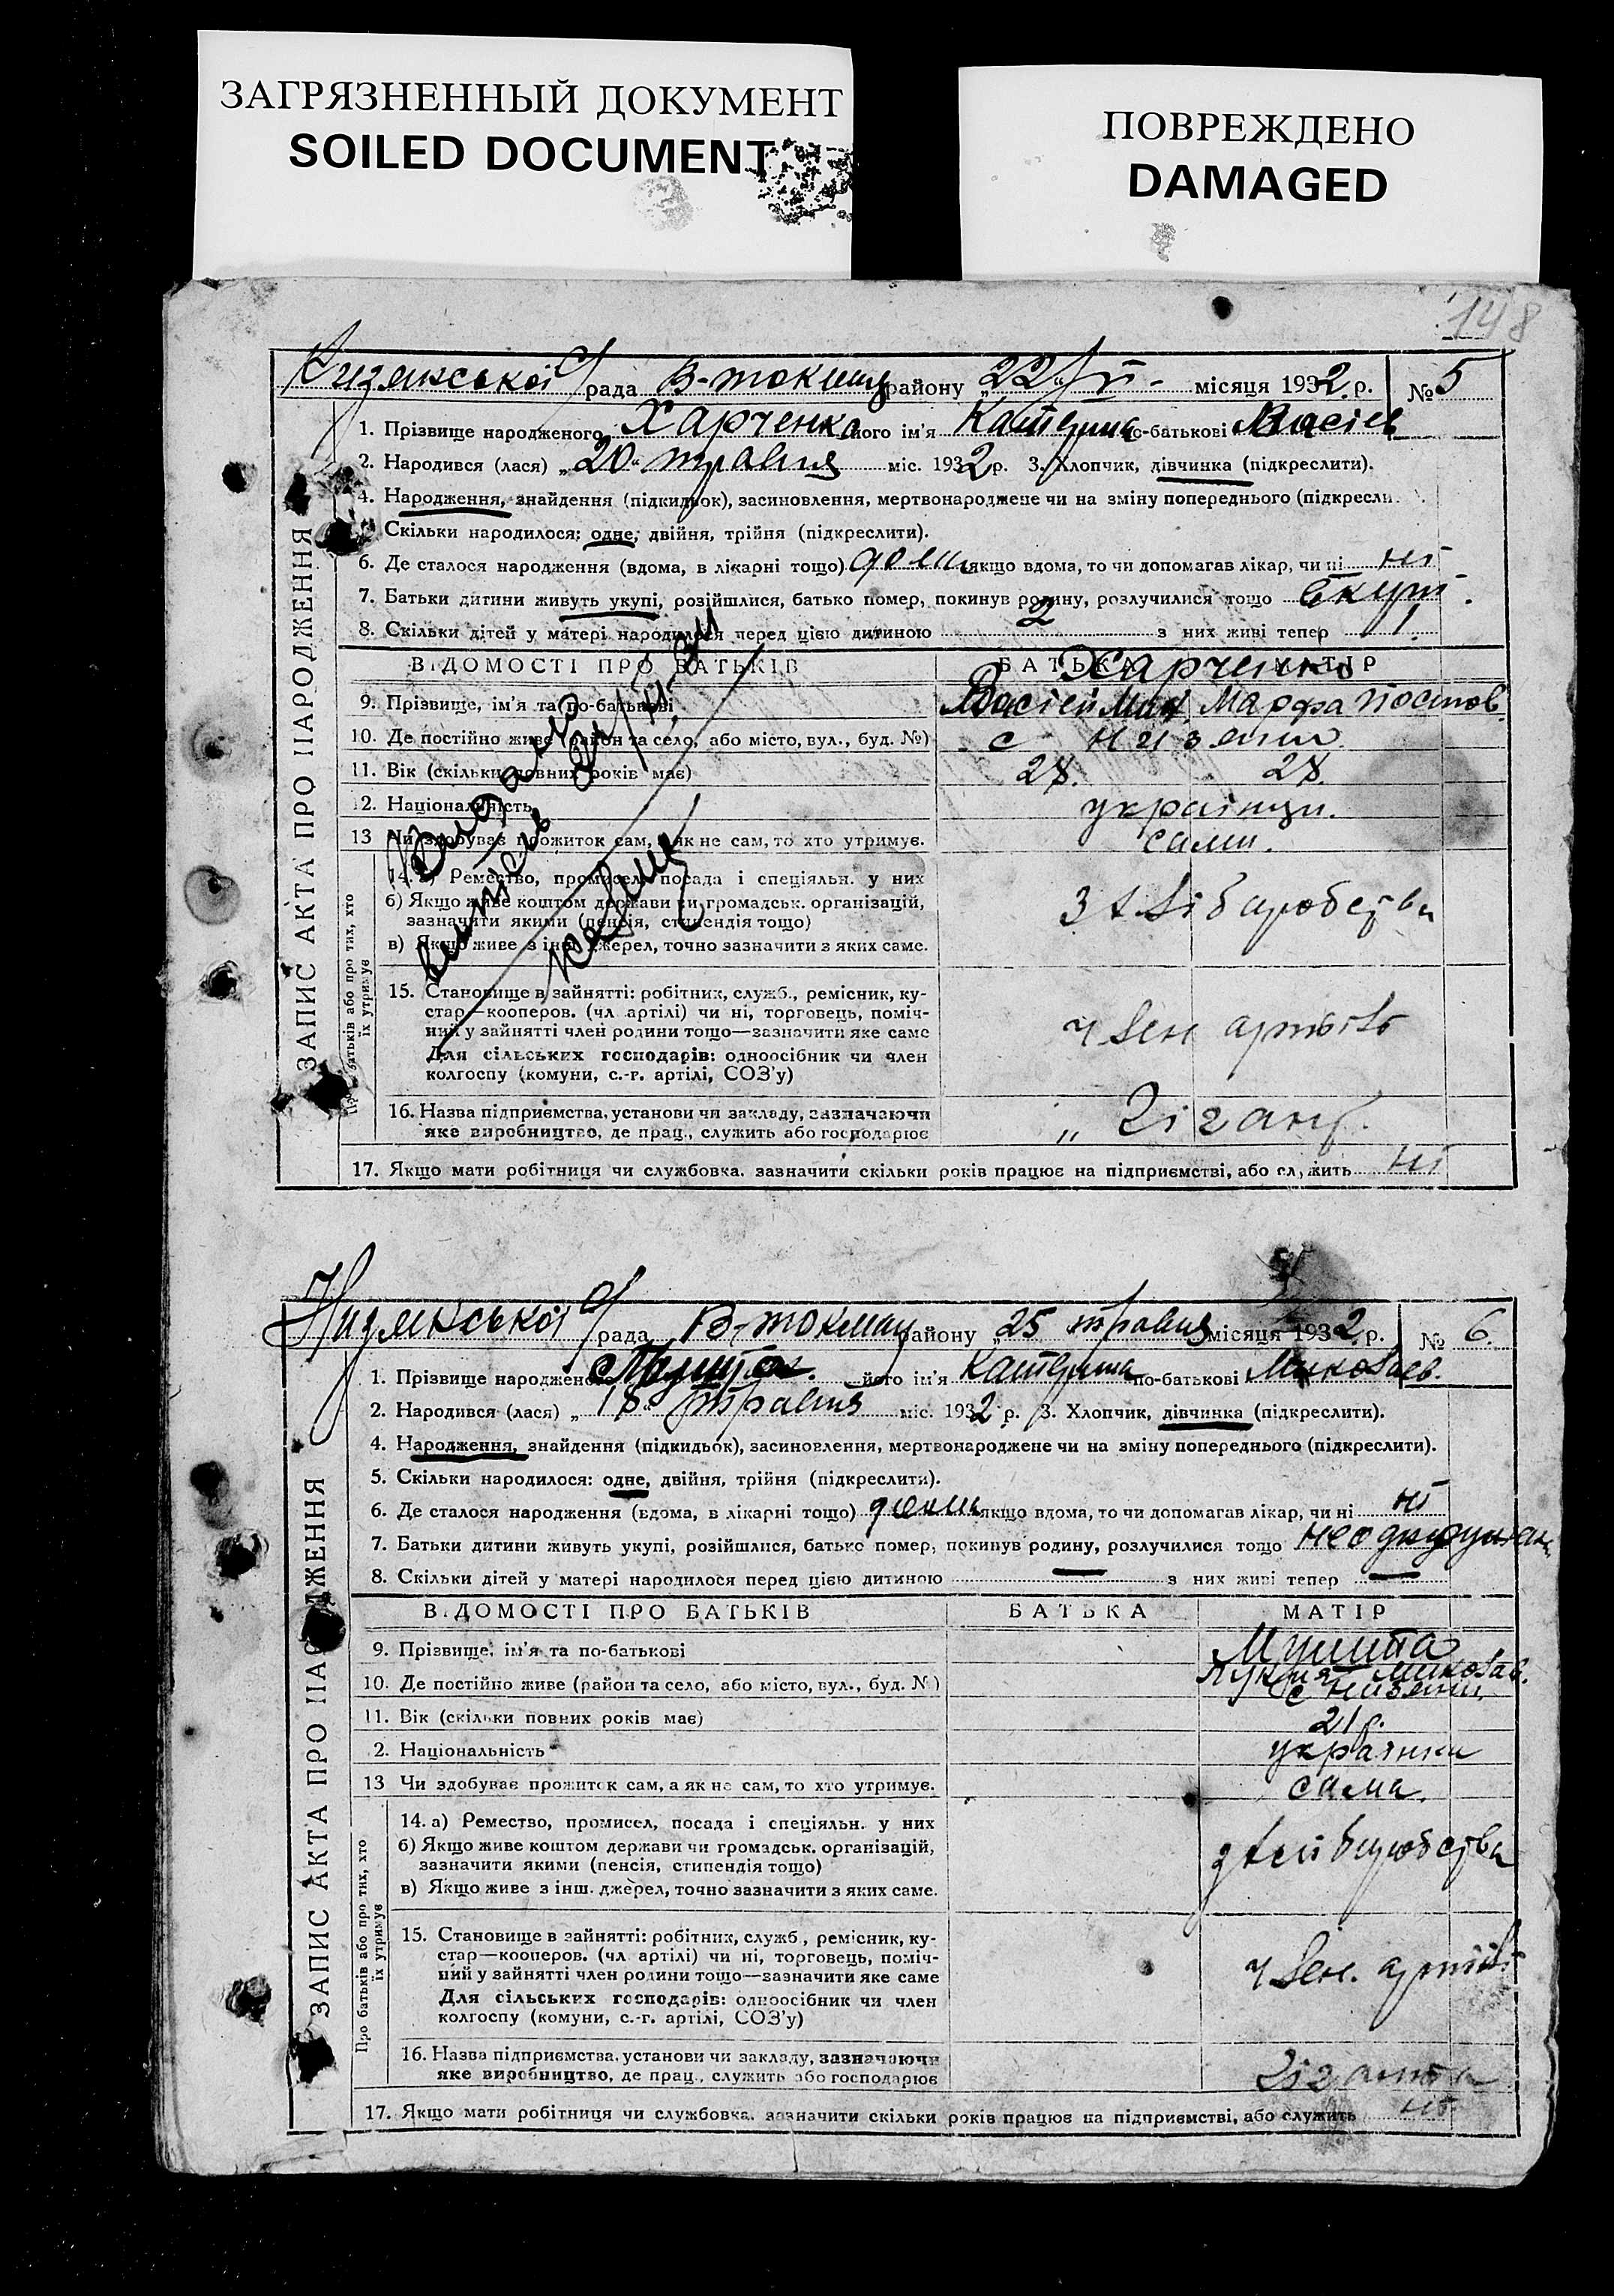 ЗАГРЯЗНЕННЫЙ ДОКУМЕНТ
SOILED DOCUMENT
ПОВРЕЖДЕНО
DAMAGED
148
рада В-токмац району „22" V - місяця 1932 р. № 5
ЗАПИС АКТА ПРО НАРОДЖЕННЯ
1. Прізвище народженого Харченко його ім'я Катерина по-батькові Васілев
2. Народився (лася) „20" травня міс. 1932 р. 3. Хлопчик, дівчинка (підкреслити).
4. Народження, знайдення (підкидьок), засиновлення, мертвонароджене чи на зміну попереднього (підкресли
Скільки народилося: одне, двійня, трійня (підкреслити).
6. Де сталося народження (вдома, в лікарні тощо) дома якщо вдома, то чи допомагав лікар, чи ні ні
7. Батьки дитини живуть укупі, розійшлися, батько помер, покинув родину, розлучилися тощо вкупі
8. Скільки дітей у матері народилося перед цією дитиною 2 з них живі тепер 1.
ВІДОМОСТІ ПРО БАТЬКІВ БАТЬКА МАТІР
Харченко
9. Прізвище, ім'я та по-батькові Васілий Мих. Марфа
10. Де постійно живе (район та село, або місто, вул., буд. №) с
11. Вік (скільки повних років має) 28. 28.
12. Національність українци.
13 Чи здобуває прожиток сам, а як не сам, то хто утримує. сами.
Про батьків або про тих, хто їх утримує
14. а) Ремество, промисел, посада і спеціяльн. у них
б) Якщо живе коштом держави чи громадськ. організацій,
зазначити якими (пенсія, стипендія тощо)
в) Якщо живе з інш. джерел, точно зазначити з яких саме.
з хлібаробства
15. Становище в зайнятті: робітник, служб., ремісник, ку-
стар—кооперов. (чл артілі) чи ні, торговець, поміч-
ний у зайнятті член родини тощо—зазначити яке саме
Для сільських господарів: одноосібник чи член
колгоспу (комуни, с.-г. артілі, СОЗ'у)
член артілі
16. Назва підприємства, установи чи закладу, зазначаючи
яке виробництво, де прац., служить або господарює
„ Гігант.
17. Якщо мати робітниця чи службовка, зазначити скільки років працює на підприємстві, або служить ні
рада В-токмац району „25 травня місяця 1932 р. № 6.
ЗАПИС АКТА ПРО НАРОДЖЕННЯ
1. Прізвище народженого його ім'я Катерина по-батькові Миколаєв.
2. Народився (лася) „18" травня міс. 1932 р. 3. Хлопчик, дівчинка (підкреслити).
4. Народження, знайдення (підкидьок), засиновлення, мертвонароджене чи на зміну попереднього (підкреслити).
5. Скільки народилося: одне, двійня, трійня (підкреслити).
6. Де сталося народження (вдома, в лікарні тощо) дома якщо вдома, то чи допомагав лікар, чи ні ні
7. Батьки дитини живуть укупі, розійшлися, батько помер, покинув родину, розлучилися тощо
8. Скільки дітей у матері народилося перед цією дитиною — з них живі тепер —
ВІДОМОСТІ ПРО БАТЬКІВ БАТЬКА МАТІР
9. Прізвище, ім'я та по-батькові Миколав.
10. Де постійно живе (район та село, або місто, вул., буд. №) с
11. Вік (скільки повних років має) 21 р.
2. Національність українка
13 Чи здобуває прожиток сам, а як не сам, то хто утримує. сама.
Про батьків або про тих, хто їх утримує
14. а) Ремество, промисел, посада і спеціяльн. у них
б) Якщо живе коштом держави чи громадськ. організацій,
зазначити якими (пенсія, стипендія тощо)
в) Якщо живе з інш. джерел, точно зазначити з яких саме.
15. Становище в зайнятті: робітник, служб., ремісник, ку-
стар—кооперов. (чл артілі) чи ні, торговець, поміч-
ний у зайнятті член родини тощо—зазначити яке саме
Для сільських господарів: одноосібник чи член
колгоспу (комуни, с.-г. артілі, СОЗ'у)
член. артілі
16. Назва підприємства, установи чи закладу, зазначаючи
яке виробництво, де прац., служить або господарює
Гіганта
17. Якщо мати робітниця чи службовка, зазначити скільки років працює на підприємстві, або служить ні